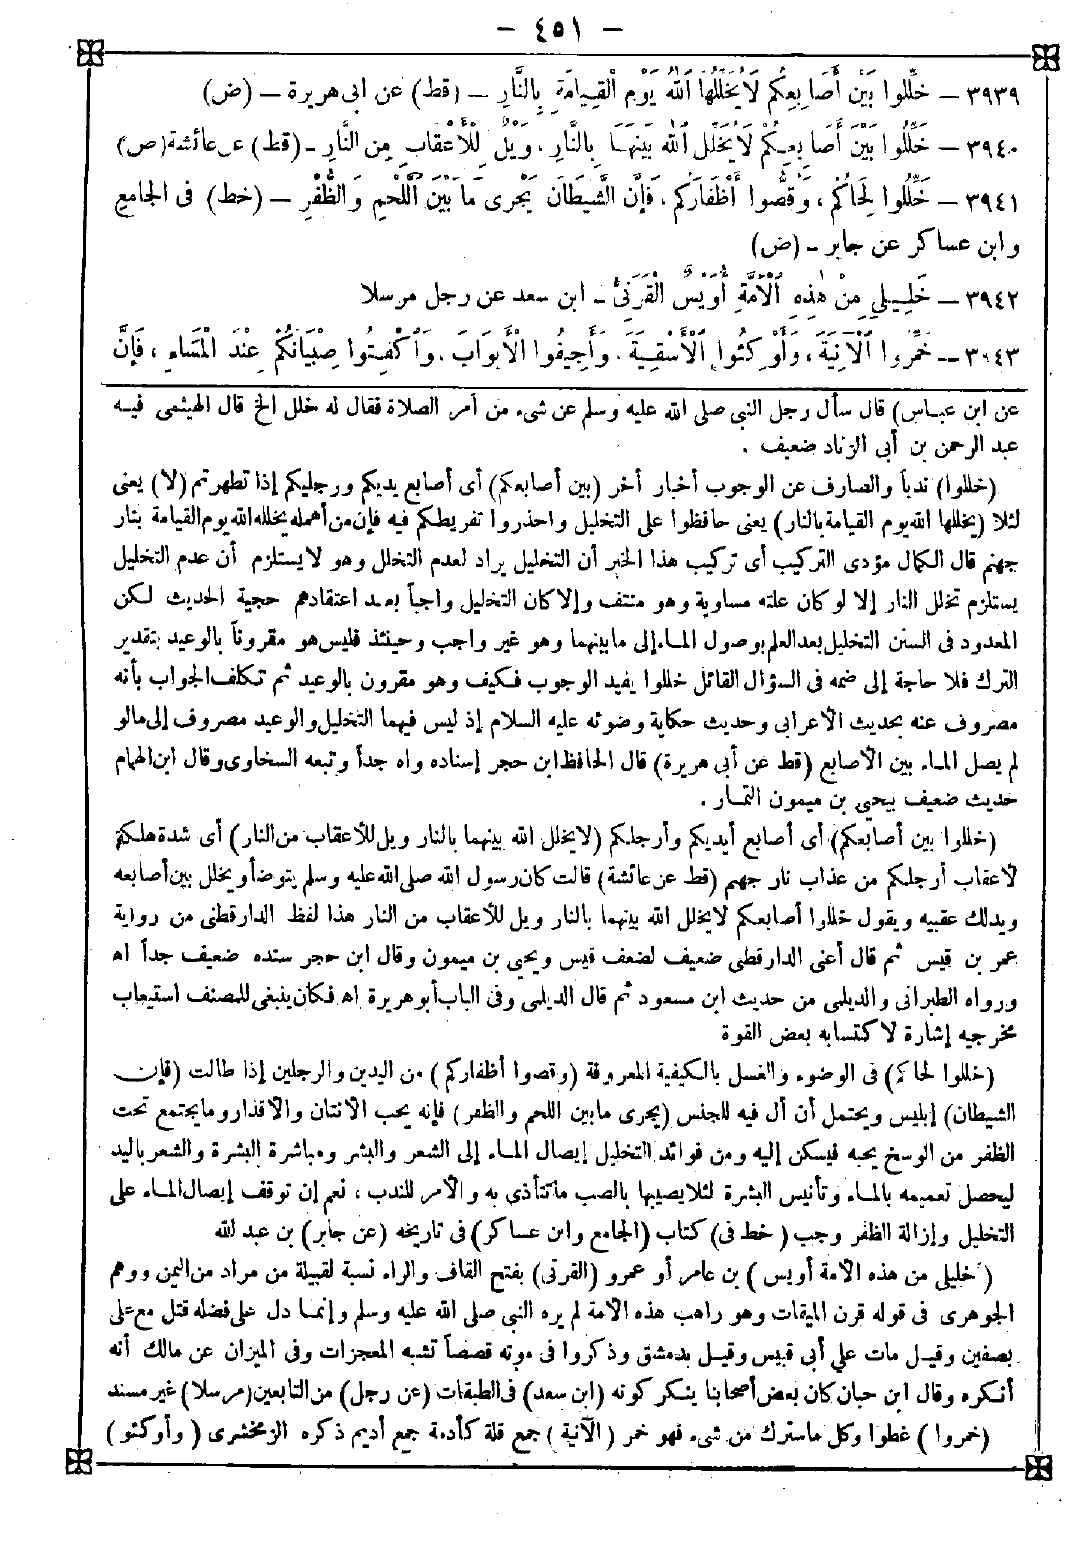 – ٤٥١ –
٣٩٣٩ – خَلِّلُوا بَيْنَ أَصَابِعِكُم لَا يُخَلِّلُهَا اللهُ يَوْمَ الْقِيامَةِ بِالنَّارِ – (قط) عن أبى هريرة – (ض)
٣٩٤٠ – خَلِّلُوا بَيْنَ أَصَابِعِكُمْ لَا يُخَلِّلُ اللهُ بَيْنَهَا بِالنَّارِ، وَيْلٌ لِلْأَعْقَابِ مِنَ النَّارِ – (قط) عن عائشة (ض)
٣٩٤١ – خَلِّلُوا لِحَاكُمْ، وَقُصُّوا أَظْفَارَكُمْ، فَإِنَّ الشَّيطَانَ يَجْرِى مَا بَيْنَ اللَّحْمِ وَالظُّفْرِ – (خط) فى الجامع
وابن عساكر عن جابر – (ض)
٣٩٤٢ – خَلِيلِي مِنْ هٰذِهِ الْأُمَّةِ أُوَيْسٌ الْقَرَنِىُّ – ابن سعد عن رجل مرسلا
٣٩٤٣ – خَمِّرُوا الْآنِيَةَ، وَأَوْكِئُوا الْأَسْقِيَةَ، وَأَجِيفُوا الْأَبْوَابَ، وَاكْفِتُوا صِبْيَانَكُمْ عِنْدَ الْمَسَاءِ، فَإِنَّ
عن ابن عباس) قال سأل رجل النبى صلى الله عليه وسلم عن شىء من أمر الصلاة فقال له خلل الخ قال الهيثمى فيه
عبد الرحمن بن أبى الزناد ضعيف .
(خللوا) ندباً والصارف عن الوجوب أخبار أخر (بين أصابعكم) أى أصابع يديكم ورجليكم إذا تطهرتم (لا) يعنى
لئلا (يخللها الله يوم القيامة بالنار) يعنى حافظوا على التخليل واحذروا تفريطكم فيه فإن من أهمله يخلله الله يوم القيامة بنار
جهنم قال الكمال مؤدى التركيب أى تركيب هذا الخبر أن التخليل يراد لعدم التخلل وهو لا يستلزم أن عدم التخليل
يستلزم تخلل النار إلا لو كان علته مساوية وهو منتف وإلا كان التخليل واجباً بعد اعتقادهم حجية الحديث لكن
المعدود فى السنن التخليل بعد العلم بوصول الماء إلى ما بينهما وهو غير واجب وحينئذ فليس هو مقروناً بالوعيد بتقدير
الترك فلا حاجة إلى ضمه فى السؤال القائل خللوا يفيد الوجوب فكيف وهو مقرون بالوعيد ثم تكلف الجواب بأنه
مصروف عنه بحديث الأعرابى وحديث حكاية وضوئه عليه السلام إذ ليس فيهما التخليل والوعيد مصروف إلى ما لو
لم يصل الماء بين الأصابع (قط عن أبى هريرة) قال الحافظ ابن حجر إسناده واه جداً وتبعه السخاوى وقال ابن الهمام
حديث ضعيف بيحيى بن ميمون التمار .
(خللوا بين أصابعكم) أى أصابع أيديكم وأرجلكم (لا يخلل الله بينهما بالنار ويل للأعقاب من النار) أى شدة هلكة
لأعقاب أرجلكم من عذاب نار جهنم (قط عن عائشة) قالت كان رسول الله صلى الله عليه وسلم يتوضأ ويخلل بين أصابعه
ويدلك عقبيه ويقول خللوا أصابعكم لا يخلل الله بينهما بالنار ويل للأعقاب من النار هذا لفظ الدارقطنى من رواية
عمر بن قيس ثم قال أعنى الدارقطنى ضعيف لضعف قيس ويحيى بن ميمون وقال ابن حجر سنده ضعيف جداً اه
ورواه الطبرانى والديلمى من حديث ابن مسعود ثم قال الديلمى وفى الباب أبو هريرة اه فكان ينبغى للمصنف استيعاب
مخرجيه إشارة لاكتسابه بعض القوة
(خللوا لحاكم) فى الوضوء والغسل بالكيفية المعروفة (وقصوا أظفاركم) من اليدين والرجلين إذا طالت (فإن
الشيطان) إبليس ويحتمل أن أل فيه للجنس (يجرى ما بين اللحم والظفر) فإنه يحب الأنتان والأقذار وما يجتمع تحت
الظفر من الوسخ يحبه فيسكن إليه ومن فوائد التخليل إيصال الماء إلى الشعر والبشر ومباشرة البشرة والشعر باليد
ليحصل تعميمه بالماء وتأنيس البشرة لئلا يصيبها بالصب ما تتأذى به والأمر للندب ، نعم إن توقف إيصال الماء على
التخليل وإزالة الظفر وجب (خط فى) كتاب (الجامع وابن عساكر) فى تاريخه (عن جابر) بن عبد الله
(خليلى من هذه الأمة أويس) بن عامر أو عمرو (القرنى) بفتح القاف والراء نسبة لقبيلة من مراد من اليمن ووهم
الجوهرى فى قوله قرن الميقات وهو راهب هذه الأمة لم يره النبى صلى الله عليه وسلم وإنما دل على فضله قتل مع على
بصفين وقيل مات على أبى قبيس وقيل بدمشق وذكروا فى موته قصصاً تشبه المعجزات وفى الميزان عن مالك أنه
أنكره وقال ابن حبان كان بعض أصحابنا ينكر كونه (ابن سعد) فى الطبقات (عن رجل) من التابعين (مرسلا) غير مسند
(خمروا) غطوا وكل ما ستر ك من شىء فهو خمر (الآنية) جمع قلة كأدمة جمع أديم ذكره الزمخشرى (وأوكئو)